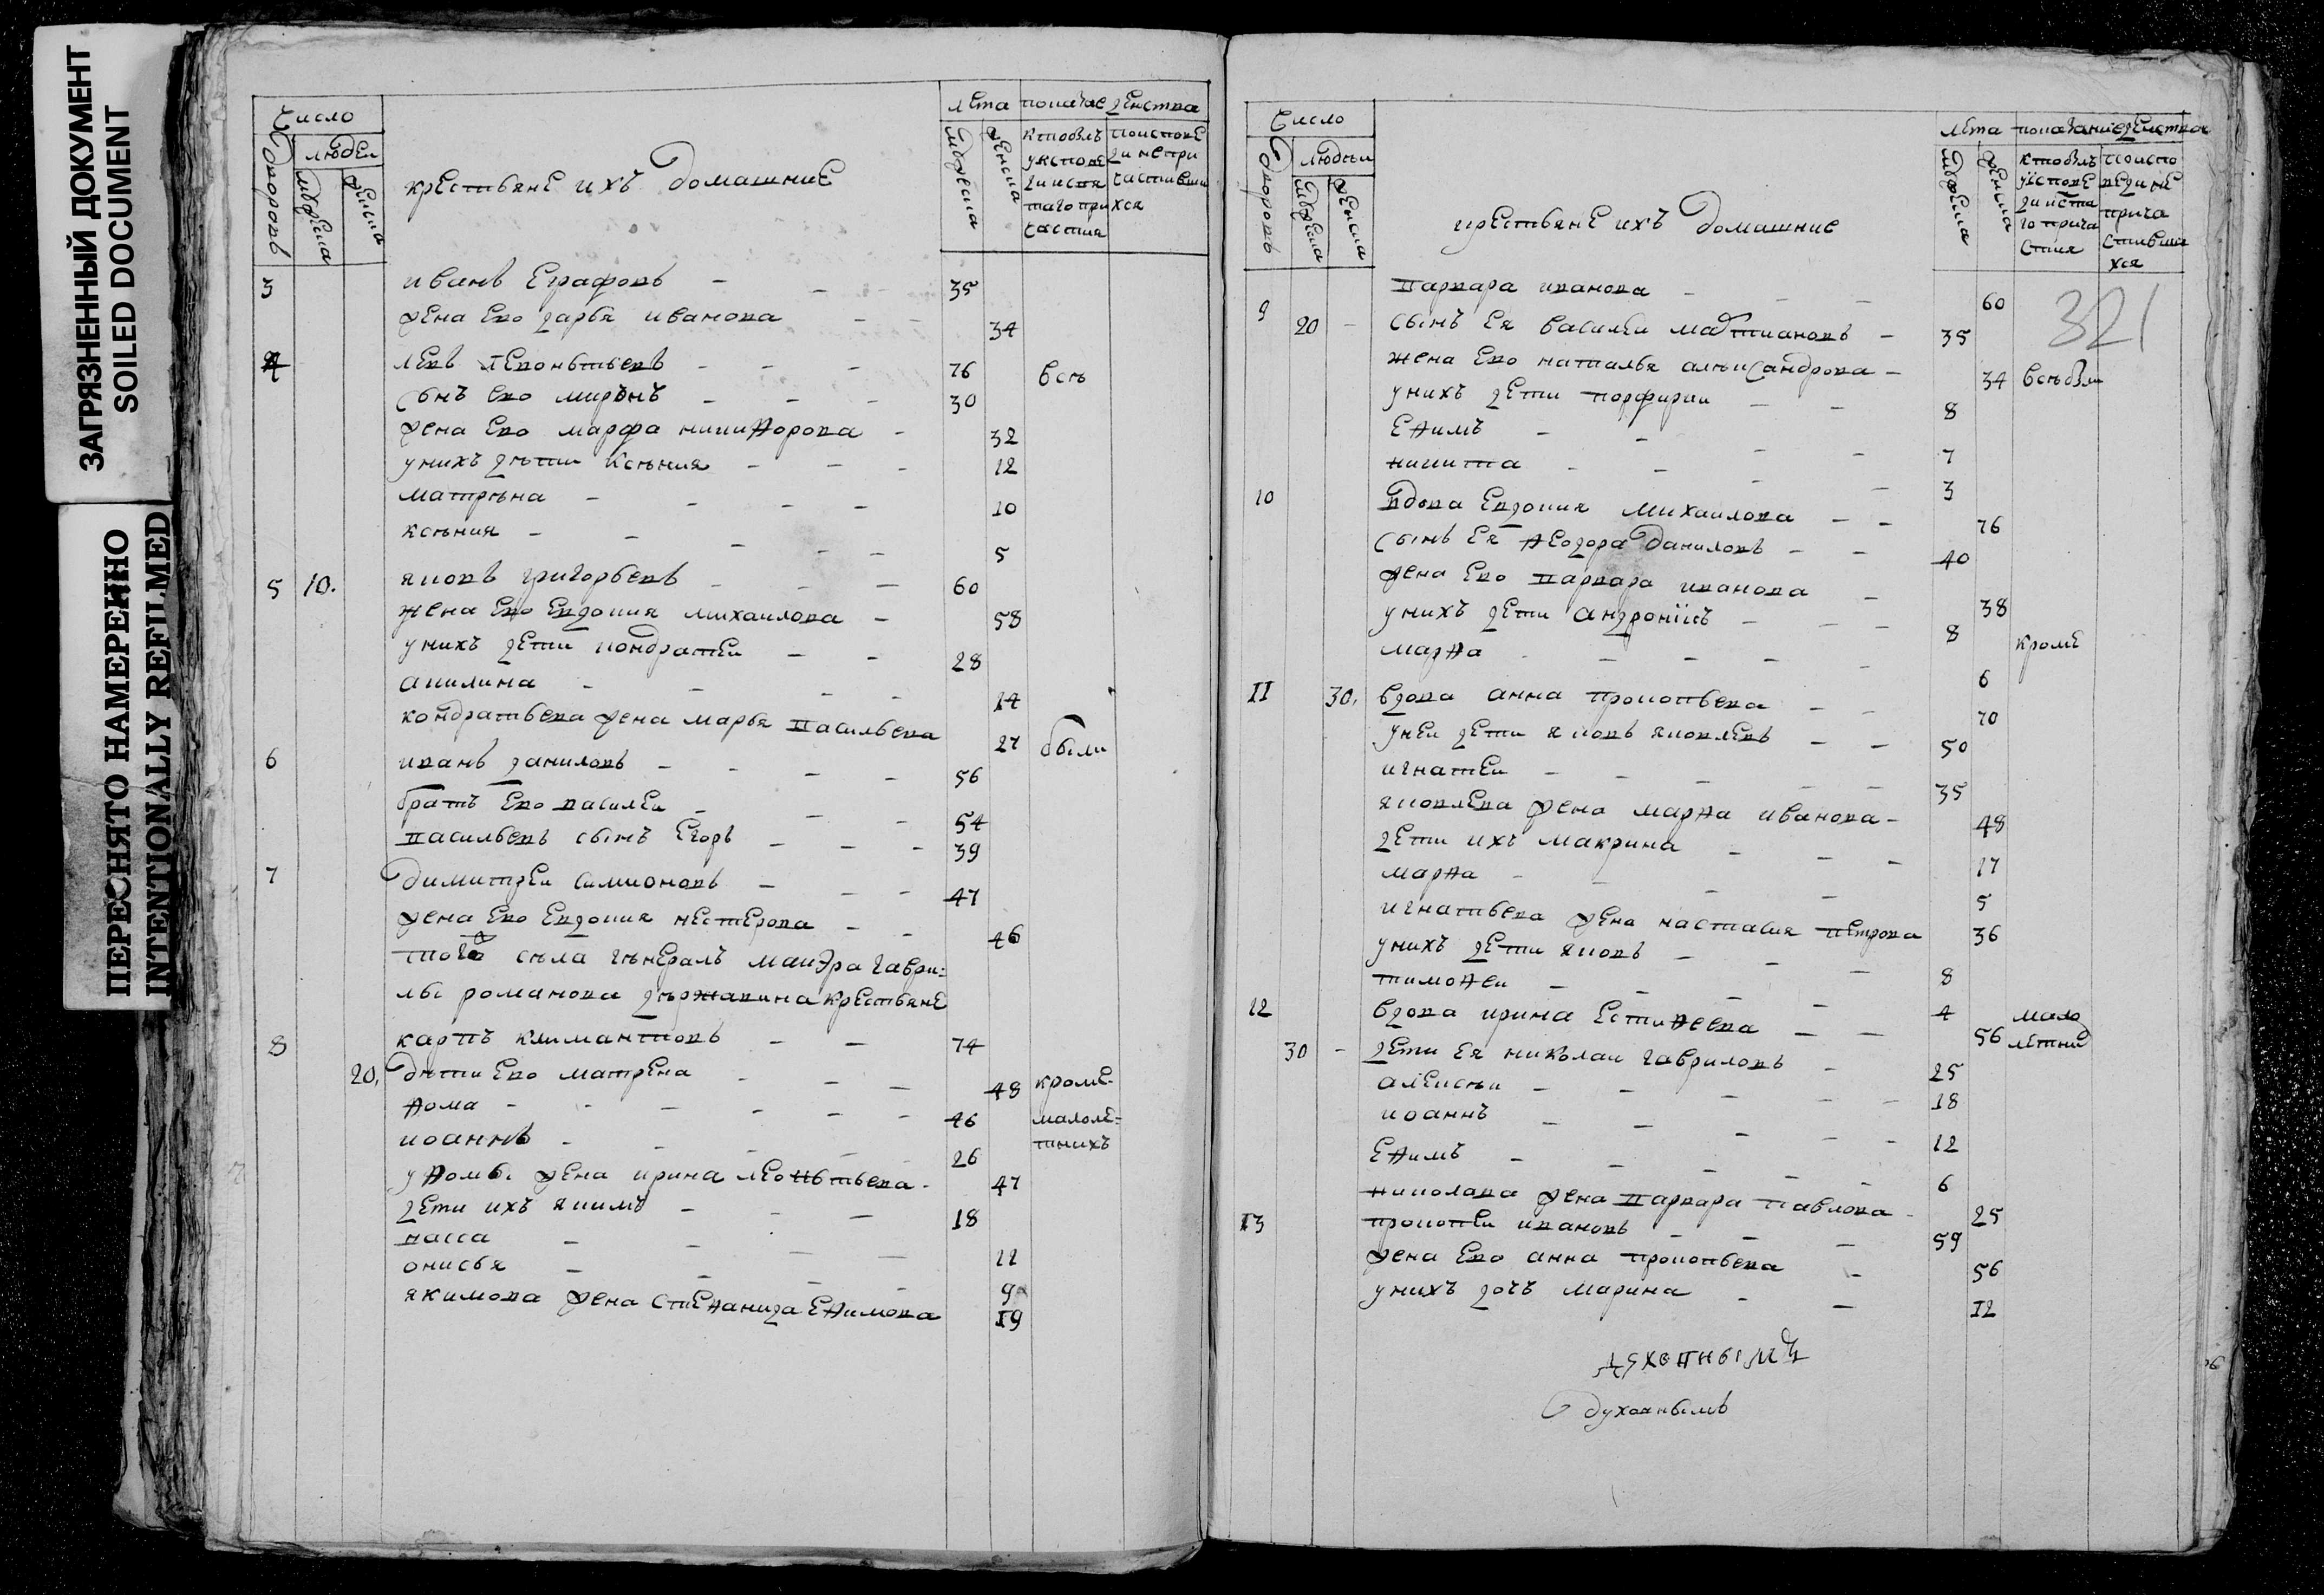 ЗАГРЯЗНЕННЫЙ ДОКУМЕНТ
SOILED DOCUMENT
ПЕРЕСНЯТО НАМЕРЕННО
INTENTIONALLY REFILMED
Число
дворовъ
людеи
мужеска
женска
крестьяне ихъ домашние
лета
мужеска
женска
показае деиства
кто былъ
у испове
ди и свя
таго при
частия
по испове
ди не при
частивши
хся
3 иванъ Еграфовъ 35
жена Ево дарья иванова 34
4 левъ левонтьевъ 76 всѣ
сынъ ево миронъ 30
жена Ево марфа никиѳорова 32
у нихъ дѣти Ксѣния 12
матрѣна 10
ксѣния 5
5 10. яковъ григорьевъ 60
жена Ево Евдокия михаилова 58
у нихъ дети кондратеи 28
акилина 14
кондратьева жена марья васильева 27 были
6 иванъ даниловъ 56
братъ Ево василеи 54
васильевъ сынъ Егоръ 39
7 димитреи симионовъ 47
жена Ево Евдокия нестерова 46
того сѣла гѣнералъ маиора гаври-
лы романова дѣржавина крестьяне
8 карпъ климантовъ 74
20. дѣти Ево матрена 48 кроме
ѳома 46 малоле-
иоаннъ 26 тнихъ
у ѳомы жена ирина леонтьева 47
дети ихъ якимъ 18
васса 11
онисья 9
якимова жена стеѳанида Еѳимова 19
Число
дворовъ
людеи
мужеска
женска
крестьяне ихъ домашние
лета
мужеска
женска
показание деиства
кто былъ
у испове
ди и ста
го прича
стия
по испо
веди не
прича
стивши
хся
321
9 варвара иванова 60
20 сынъ Ея василеи 35
жена Ево наталья алѣксандрова 34 всѣ были
у нихъ дети порфирии 8
Еѳимъ 7
никита 3
10 вдова Евдокия михаилова 76
сынъ Ея ѳеодора даниловъ 40
жена Ево варвара иванова 38
у нихъ дети андроникъ 8 кроме
марѳа 6
11 30. вдова анна прокопьева 70
у неи дети яковъ яковлевъ 50
игнатеи 35
яковлева жена марѳа иванова 48
дети ихъ макрина 17
марѳа 5
игнатьева жена настасия петрова 36
у нихъ дети яковъ 8
тимоѳеи 4 мало
12 вдова ирина Естиѳеева 56 летныхъ
30 дети Ея николаи гавриловъ 25
алексѣи 18
иоаннъ 12
Еѳимъ 6
николаева жена варвара павлова 25
13 прокопеи ивановъ 59
жена Ево анна прокопьева 56
у нихъ дочь марина 12
духовнымъ
духовнымъ